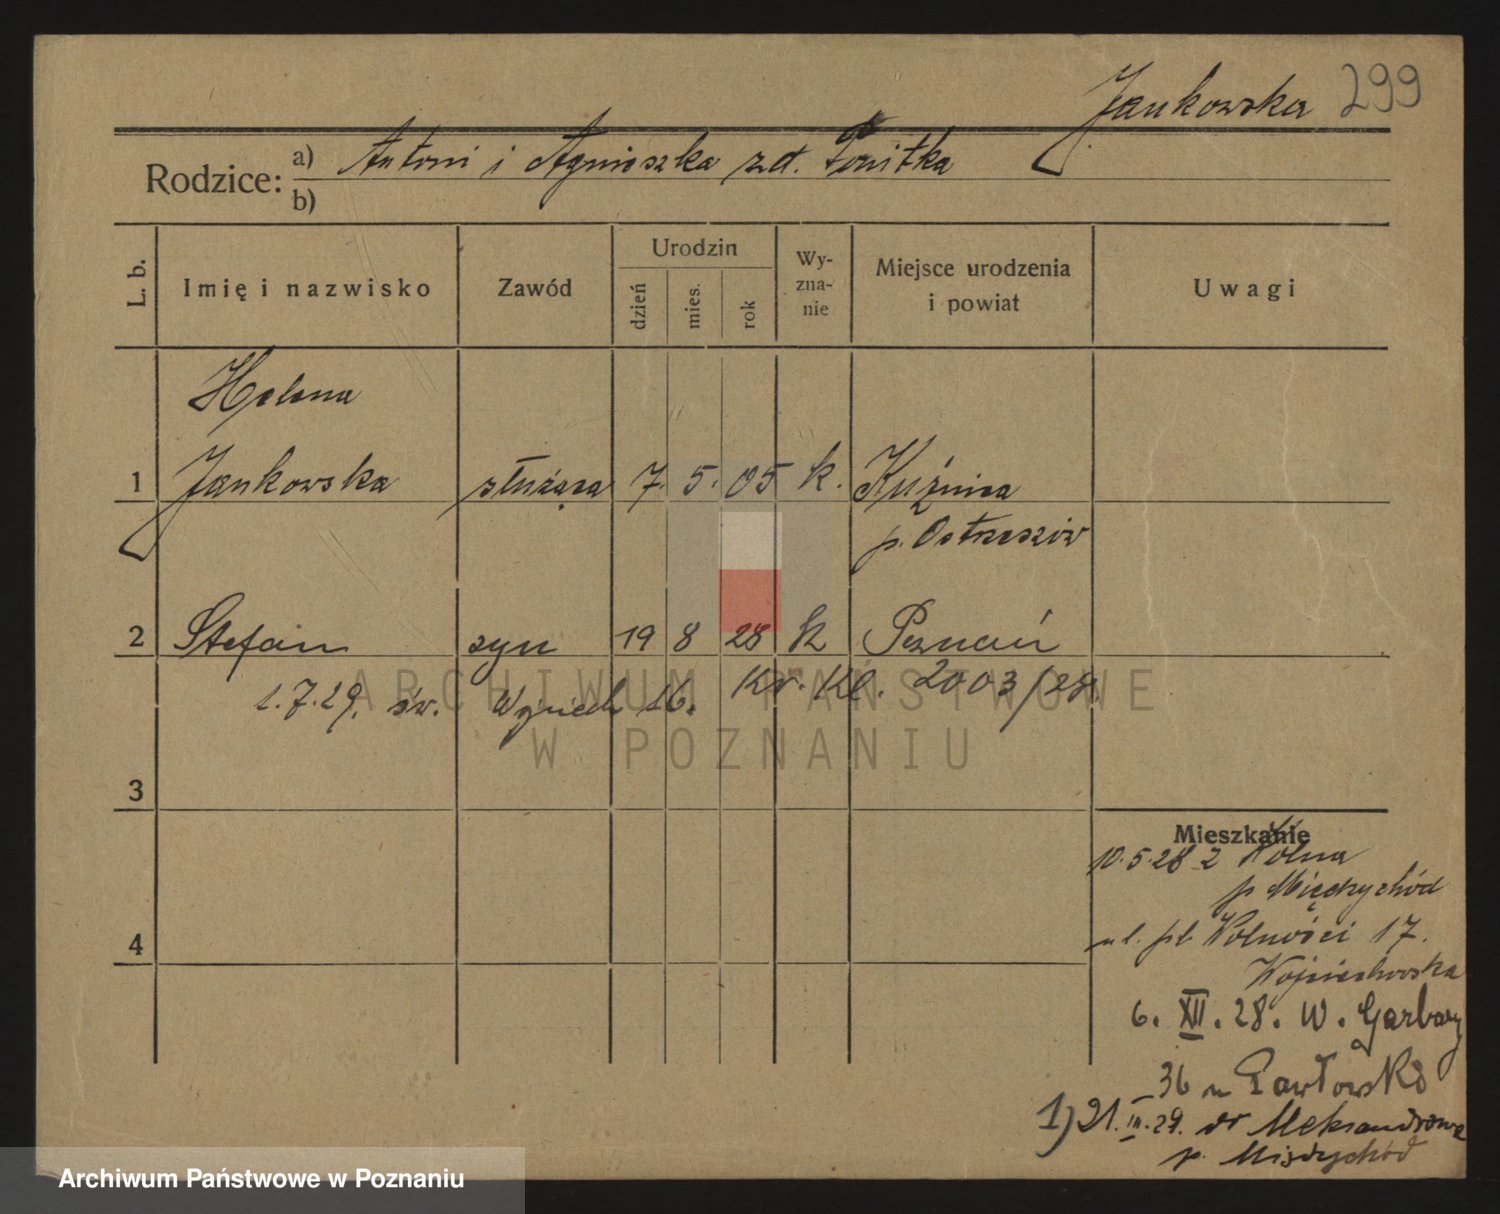 Jankowska 299
Rodzice: a) Antoni i Agnieszka zd. Ponitka
b)
L. b. Imię i nazwisko Zawód Urodzin dzień mies. rok Wy-zna-nie Miejsce urodzenia i powiat Uwagi
Helena
1 Jankowska służąca 7. 5. 05 k. Kuźnica
p. Ostrzeszów
2 Stefan syn 19 8 28 k Poznań
1.7.29. św. Wojciech 16. Kr. Kl. 2003/28
ARCHIWUM PAŃSTWOWE
W POZNANIU
3
Mieszkanie
10.5.28 z Kolna
p Międzychód
ul. pl. Wolności 17.
Wojciechowska
4
6. XII. 28. W. Garbary
36 u Pawłowsk
1) 21. III. 29. do Aleksandrowa
p. Międzychód
Archiwum Państwowe w Poznaniu